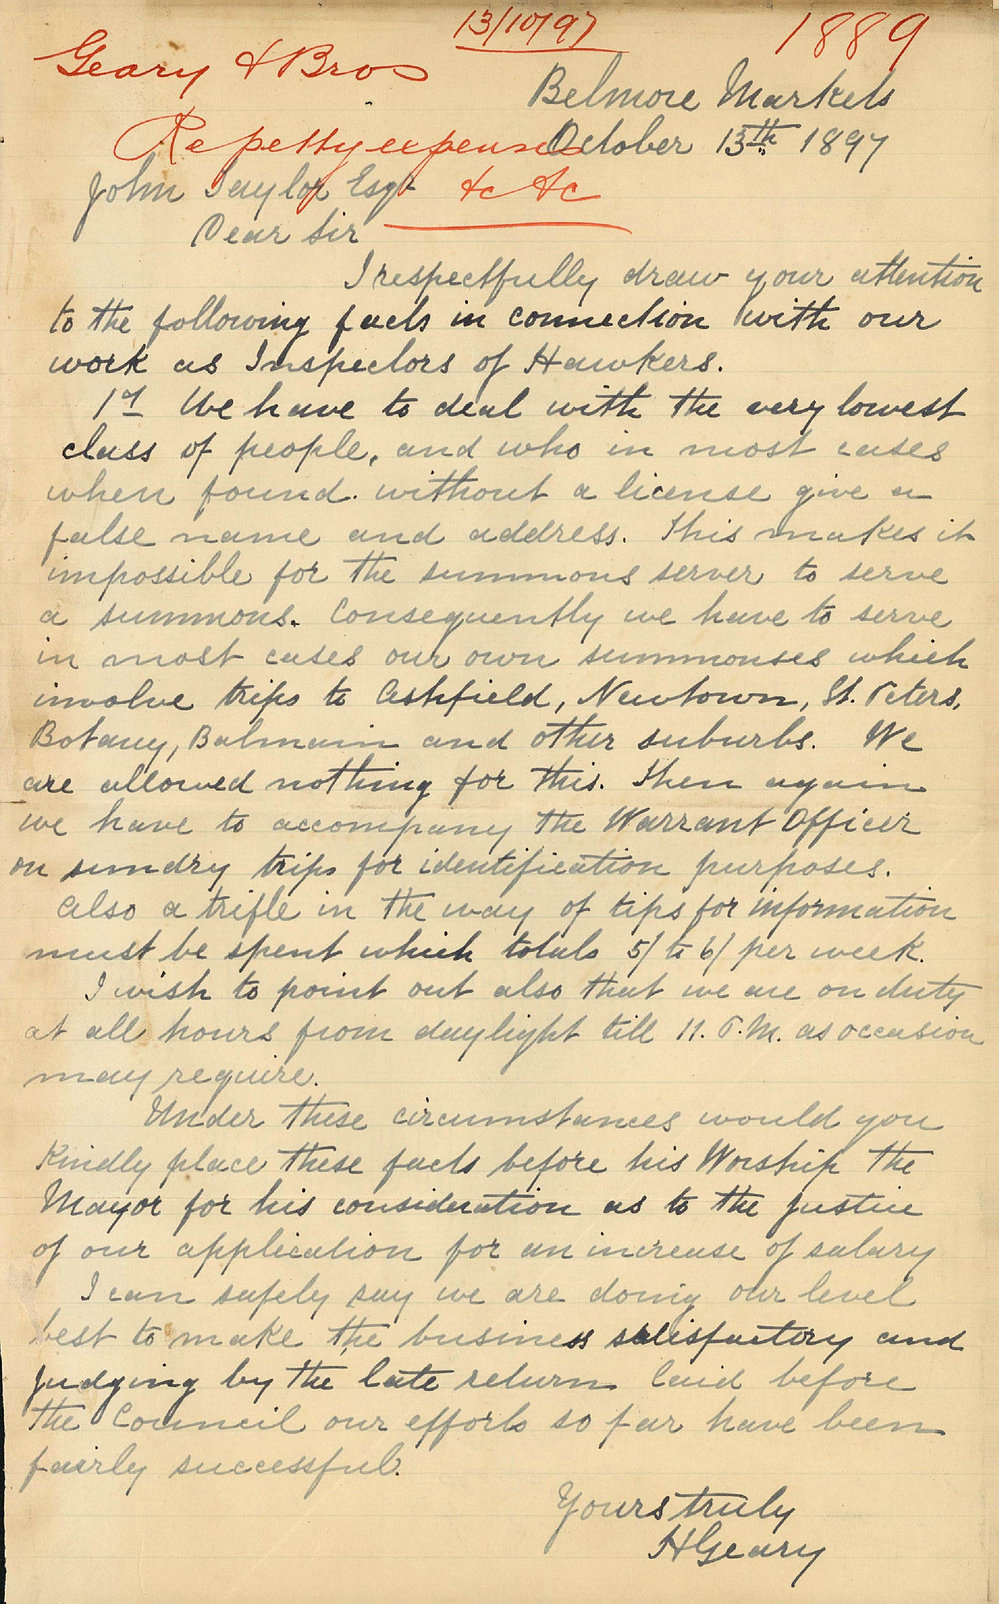 13/10/97
1889
Geary & Bros
Belmore Markets
Re petty expenses
October 13th 1897
John Taylor Esqr
&c &c
Dear Sir
I respectfully draw your attention
to the following facts in connection with our
work as Inspectors of Hawkers.
1st We have to deal with the very lowest
class of people, and who in most cases
when found without a license give a
false name and address. This makes it
impossible for the summons server to serve
a summons. Consequently we have to serve
in most cases our own summonses which
involve trips to Ashfield, Newtown, St. Peters,
Botany, Balmain and other suburbs. We
are allowed nothing for this. Then again
we have to accompany the Warrant Officer
on sundry trips for identification purposes.
Also a trifle in the way of tips for information
must be spent which totals 5/ to 6/ per week.
I wish to point out also that we are on duty
at all hours from daylight till 11. P.M. as occasion
may require.
Under these circumstances would you
Kindly place these facts before his Worship the
Mayor for his consideration as to the justice
of our application for an increase of salary
I can safely say we are doing our level
best to make the business satisfactory and
judging by the late return laid before
the Council our efforts so far have been
fairly successful.
Yours truly
H Geary